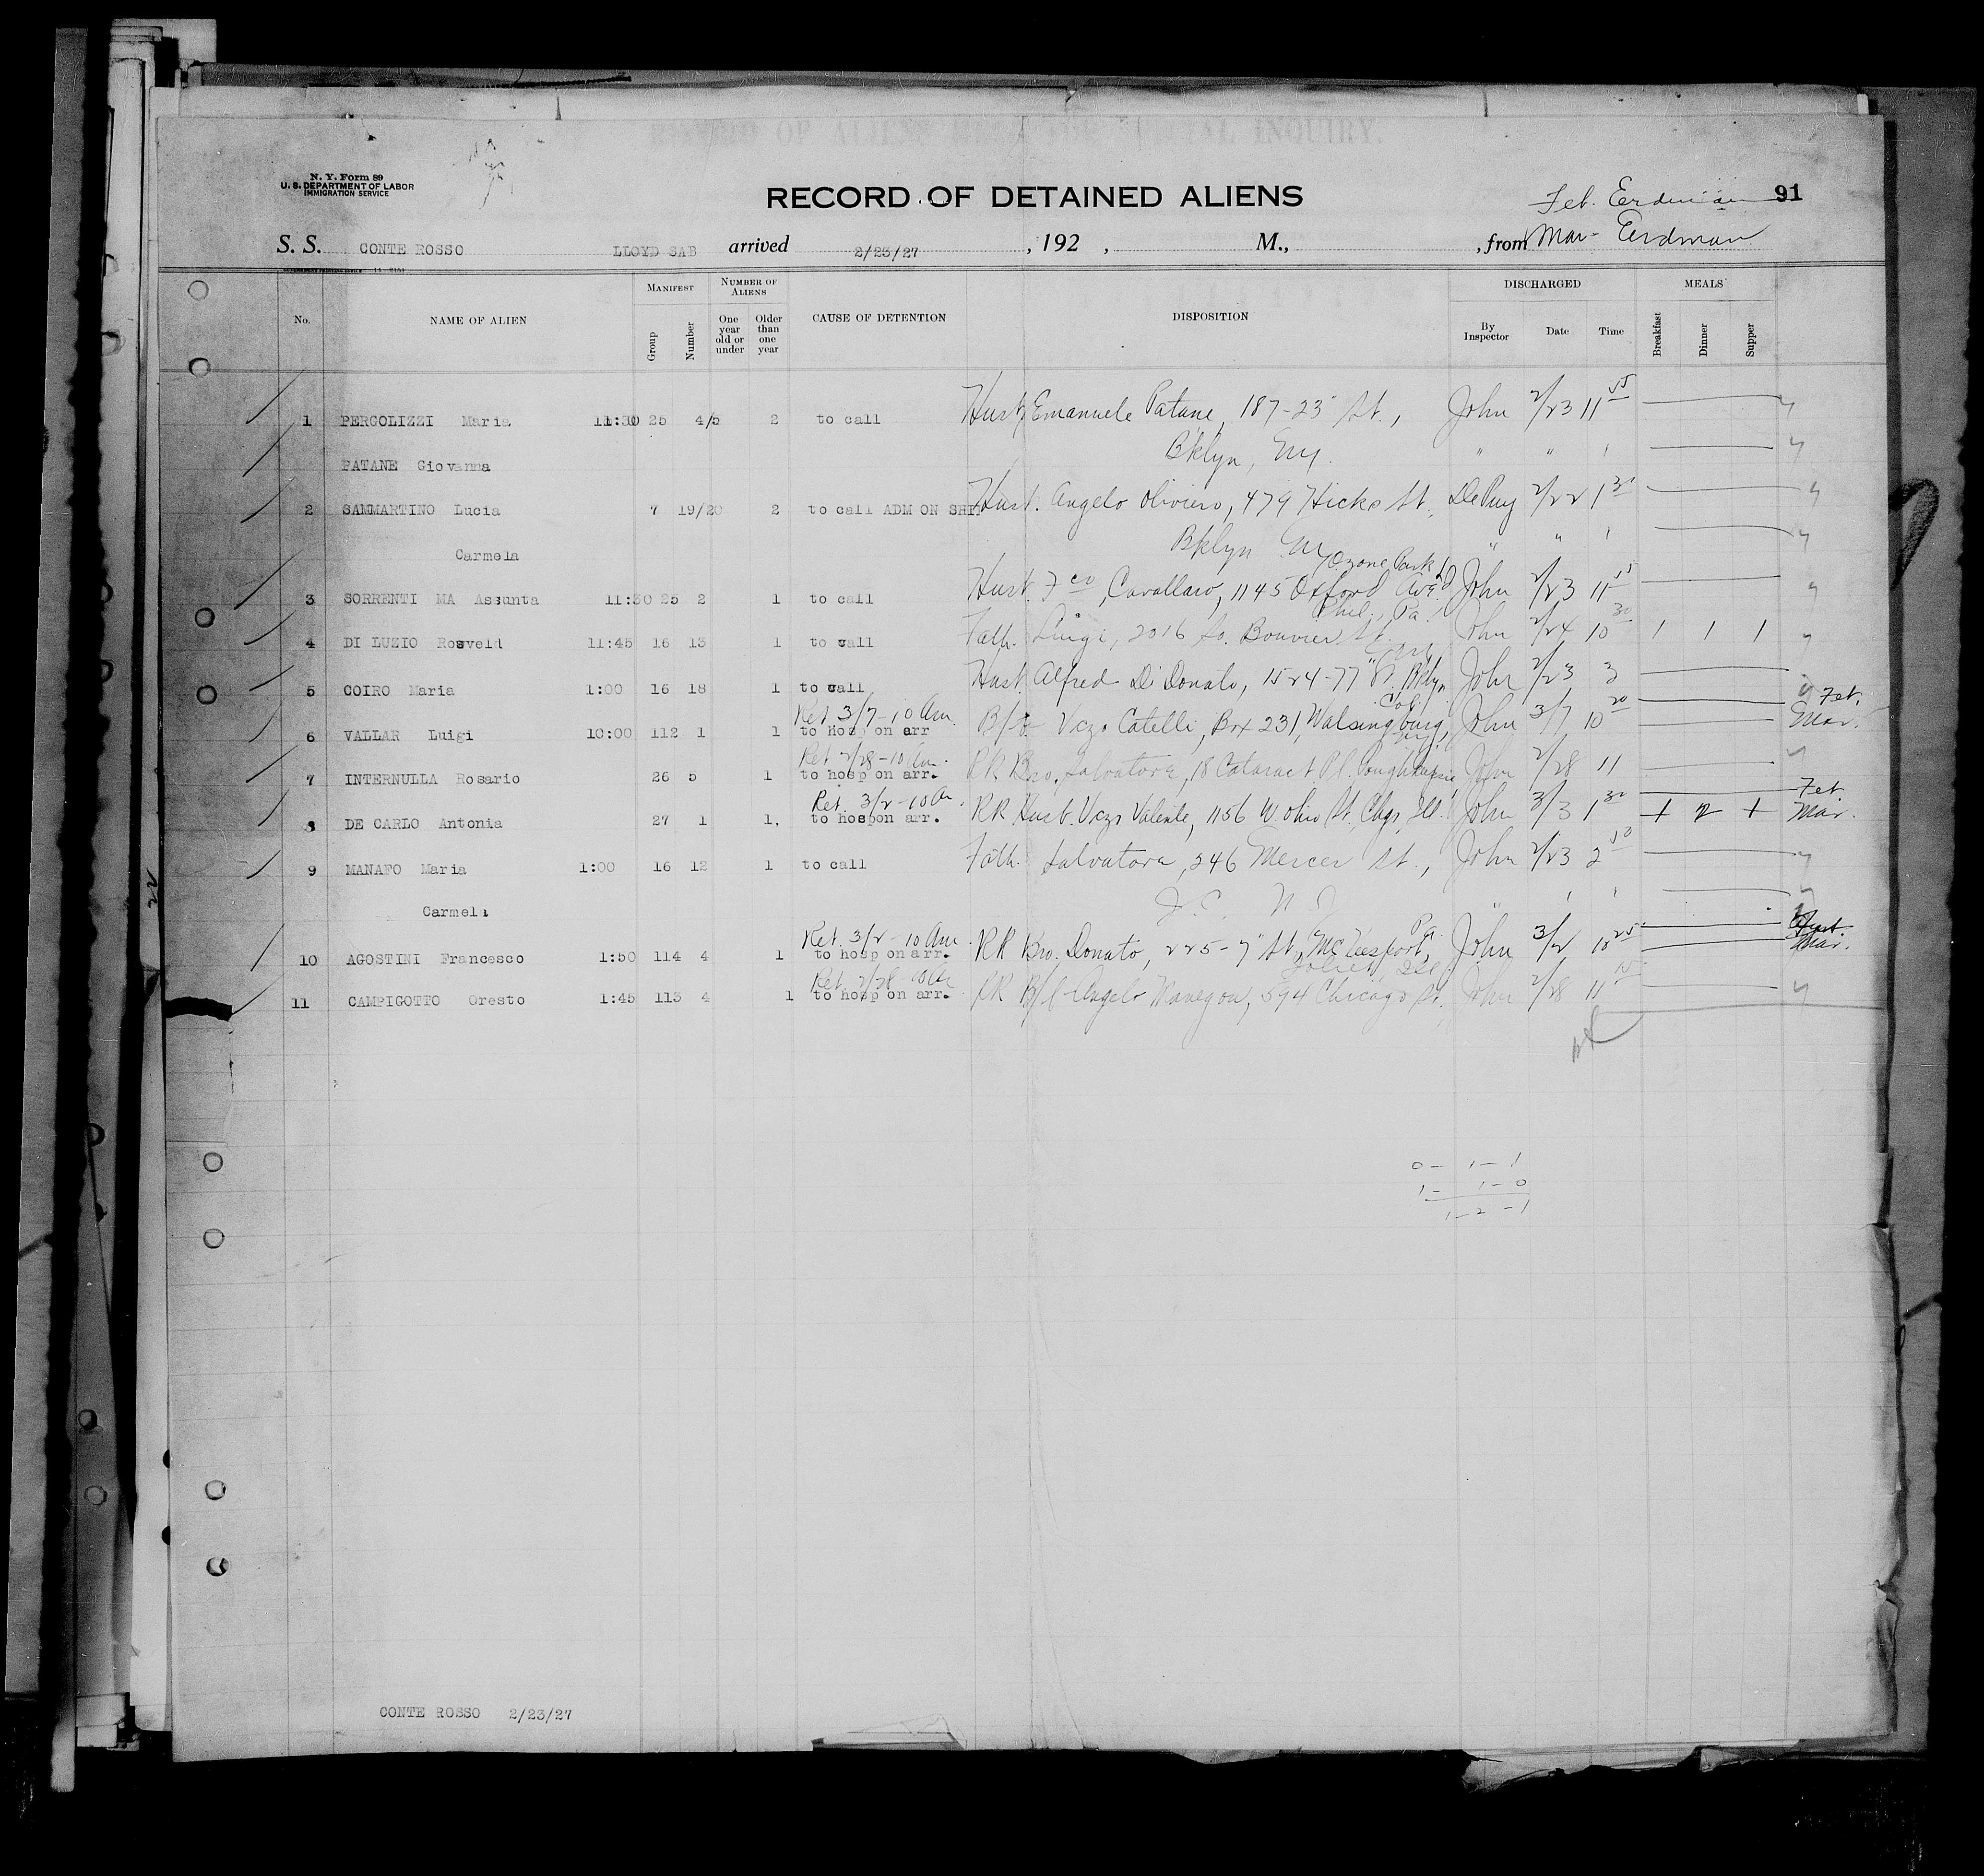 N. Y. Form 89
U. S. DEPARTMENT OF LABOR
IMMIGRATION SERVICE
RECORD OF DETAINED ALIENS
Feb. Eerdman 91
S. S. CONTE ROSSO LLOYD SAB arrived 2/23/27 , 192 , M., , from Mar- Eerdman
No. NAME OF ALIEN MANIFEST Group Number NUMBER OF ALIENS One year old or under Older than one year CAUSE OF DETENTION DISPOSITION DISCHARGED By Inspector Date Time MEALS Breakfast Dinner Supper
1 PERGOLIZZI Maria 11:30 25 4/5 2 to call Husb Emanuele Patane, 187-23" St., John 2/23 11 55
PATANE Giovanna Bklyn, Ny. " " '
2 SAMMARTINO Lucia 7 19/20 2 to call ADM ON SHIP Husb. Angelo Oliviero, 479 Hicks St., DePuy 2/22 1 30
Carmela Bklyn Ny " " '
Ozone Park
3 SORRENTI MA Assunta 11:30 25 2 1 to call Husb. Fco, Cavallaro, 1145 Oxford Ave. John 2/23 11 55
Phil., Pa.
4 DI LUZIO Rosveld 11:45 16 13 1 to call Fath. Luigi, 2016 So. Bouvier St. John 2/24 10 30 1 1 1
Ny
5 COIRO Maria 1:00 16 18 1 to call Husb. Alfred Di Donato, 1524-77" St, Bklyn John 2/23 3
Ret. 3/7-10 Am. Col. Feb.
6 VALLAR Luigi 10:00 112 1 1 to hosp on arr B/ Vczo Catelli, Box 231, Walsingburg, John 3/7 10 20 Mar.
Ret 2/28-10 Am. Ny
7 INTERNULLA Rosario 26 5 1 to hosp on arr. RR Bro. Salvatore, 18 Cataract Pl. Poughkeepsie John 2/28 11
Ret. 3/2-10 Am. Feb
8 DE CARLO Antonia 27 1 1. to hosp on arr. RR Husb. Vczo Valente, 1156 W. Ohio St., Chgo, Ill. John 3/3 1 30 1 2 1 Mar.
9 MANAFO Maria 1:00 16 12 1 to call Fath. Salvatore, 246 Mercer St., John 2/23 2 50
Carmela J. C. N. J. " ' '
Ret. 3/2-10 Am. Pa.
10 AGOSTINI Francesco 1:50 114 4 1 to hosp on arr. RR Bro. Donato, 225-7" St, McKeesport, John 3/2 10 25 Mar.
Ret. 2/28 10 Am Joliet Ill
11 CAMPIGOTTO Oresto 1:45 113 4 1 to hosp on arr. RR B/l Angelo Manegon, 594 Chicago St. John 2/28 11 55
0 - 1 - 1
1 - 1 - 0
1 - 2 - 1
CONTE ROSSO 2/23/27